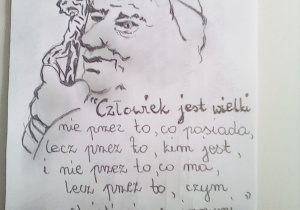 "Człowiek jest wielki
nie przez to, co posiada,
lecz przez to, kim jest,
i nie przez to, co ma,
lecz przez to, czym